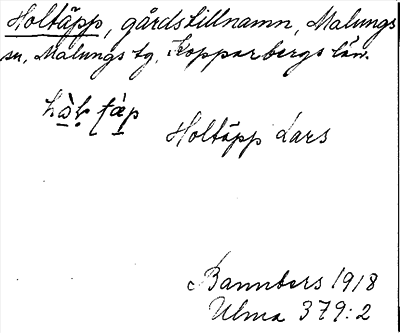 Holtäpp, gårdstillnamn, Malungs
sn, Malungs tg, Kopparbergs län.
Holtäpp Lars
Bannbers 1918
Ulma 379:2